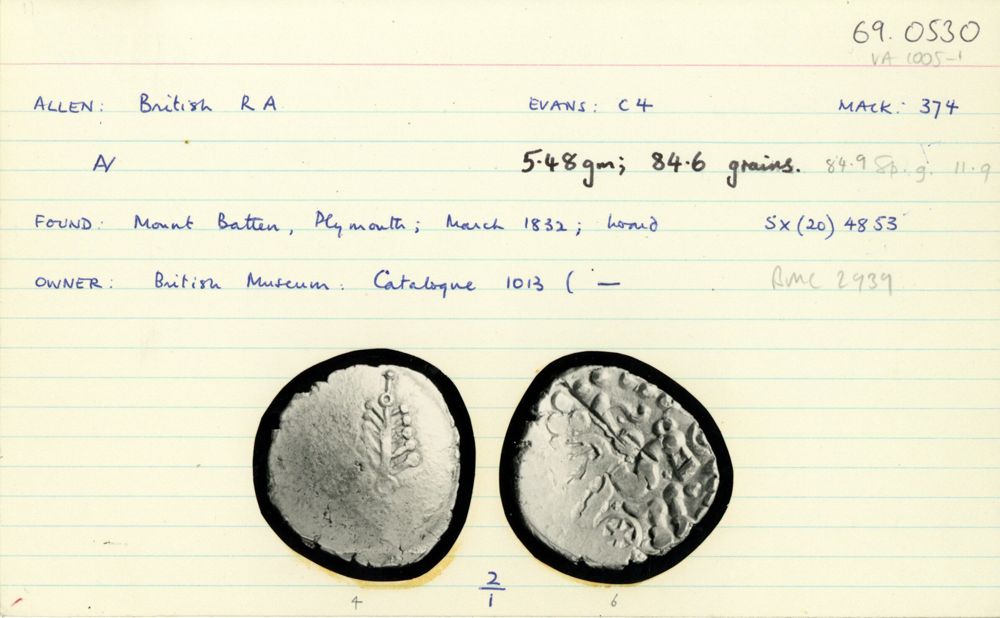 69.0530
VA 1005-1
ALLEN: British R A EVANS: C 4 MACK: 374
AV 5.48gm; 84.6 grains. 84.9 Sp. g. 11.9
FOUND: Mount Batten, Plymouth; March 1832; hoard SX(20) 4853
OWNER: British Museum: Catalogue 1013 ( — BMC 2939
2
1
4 6